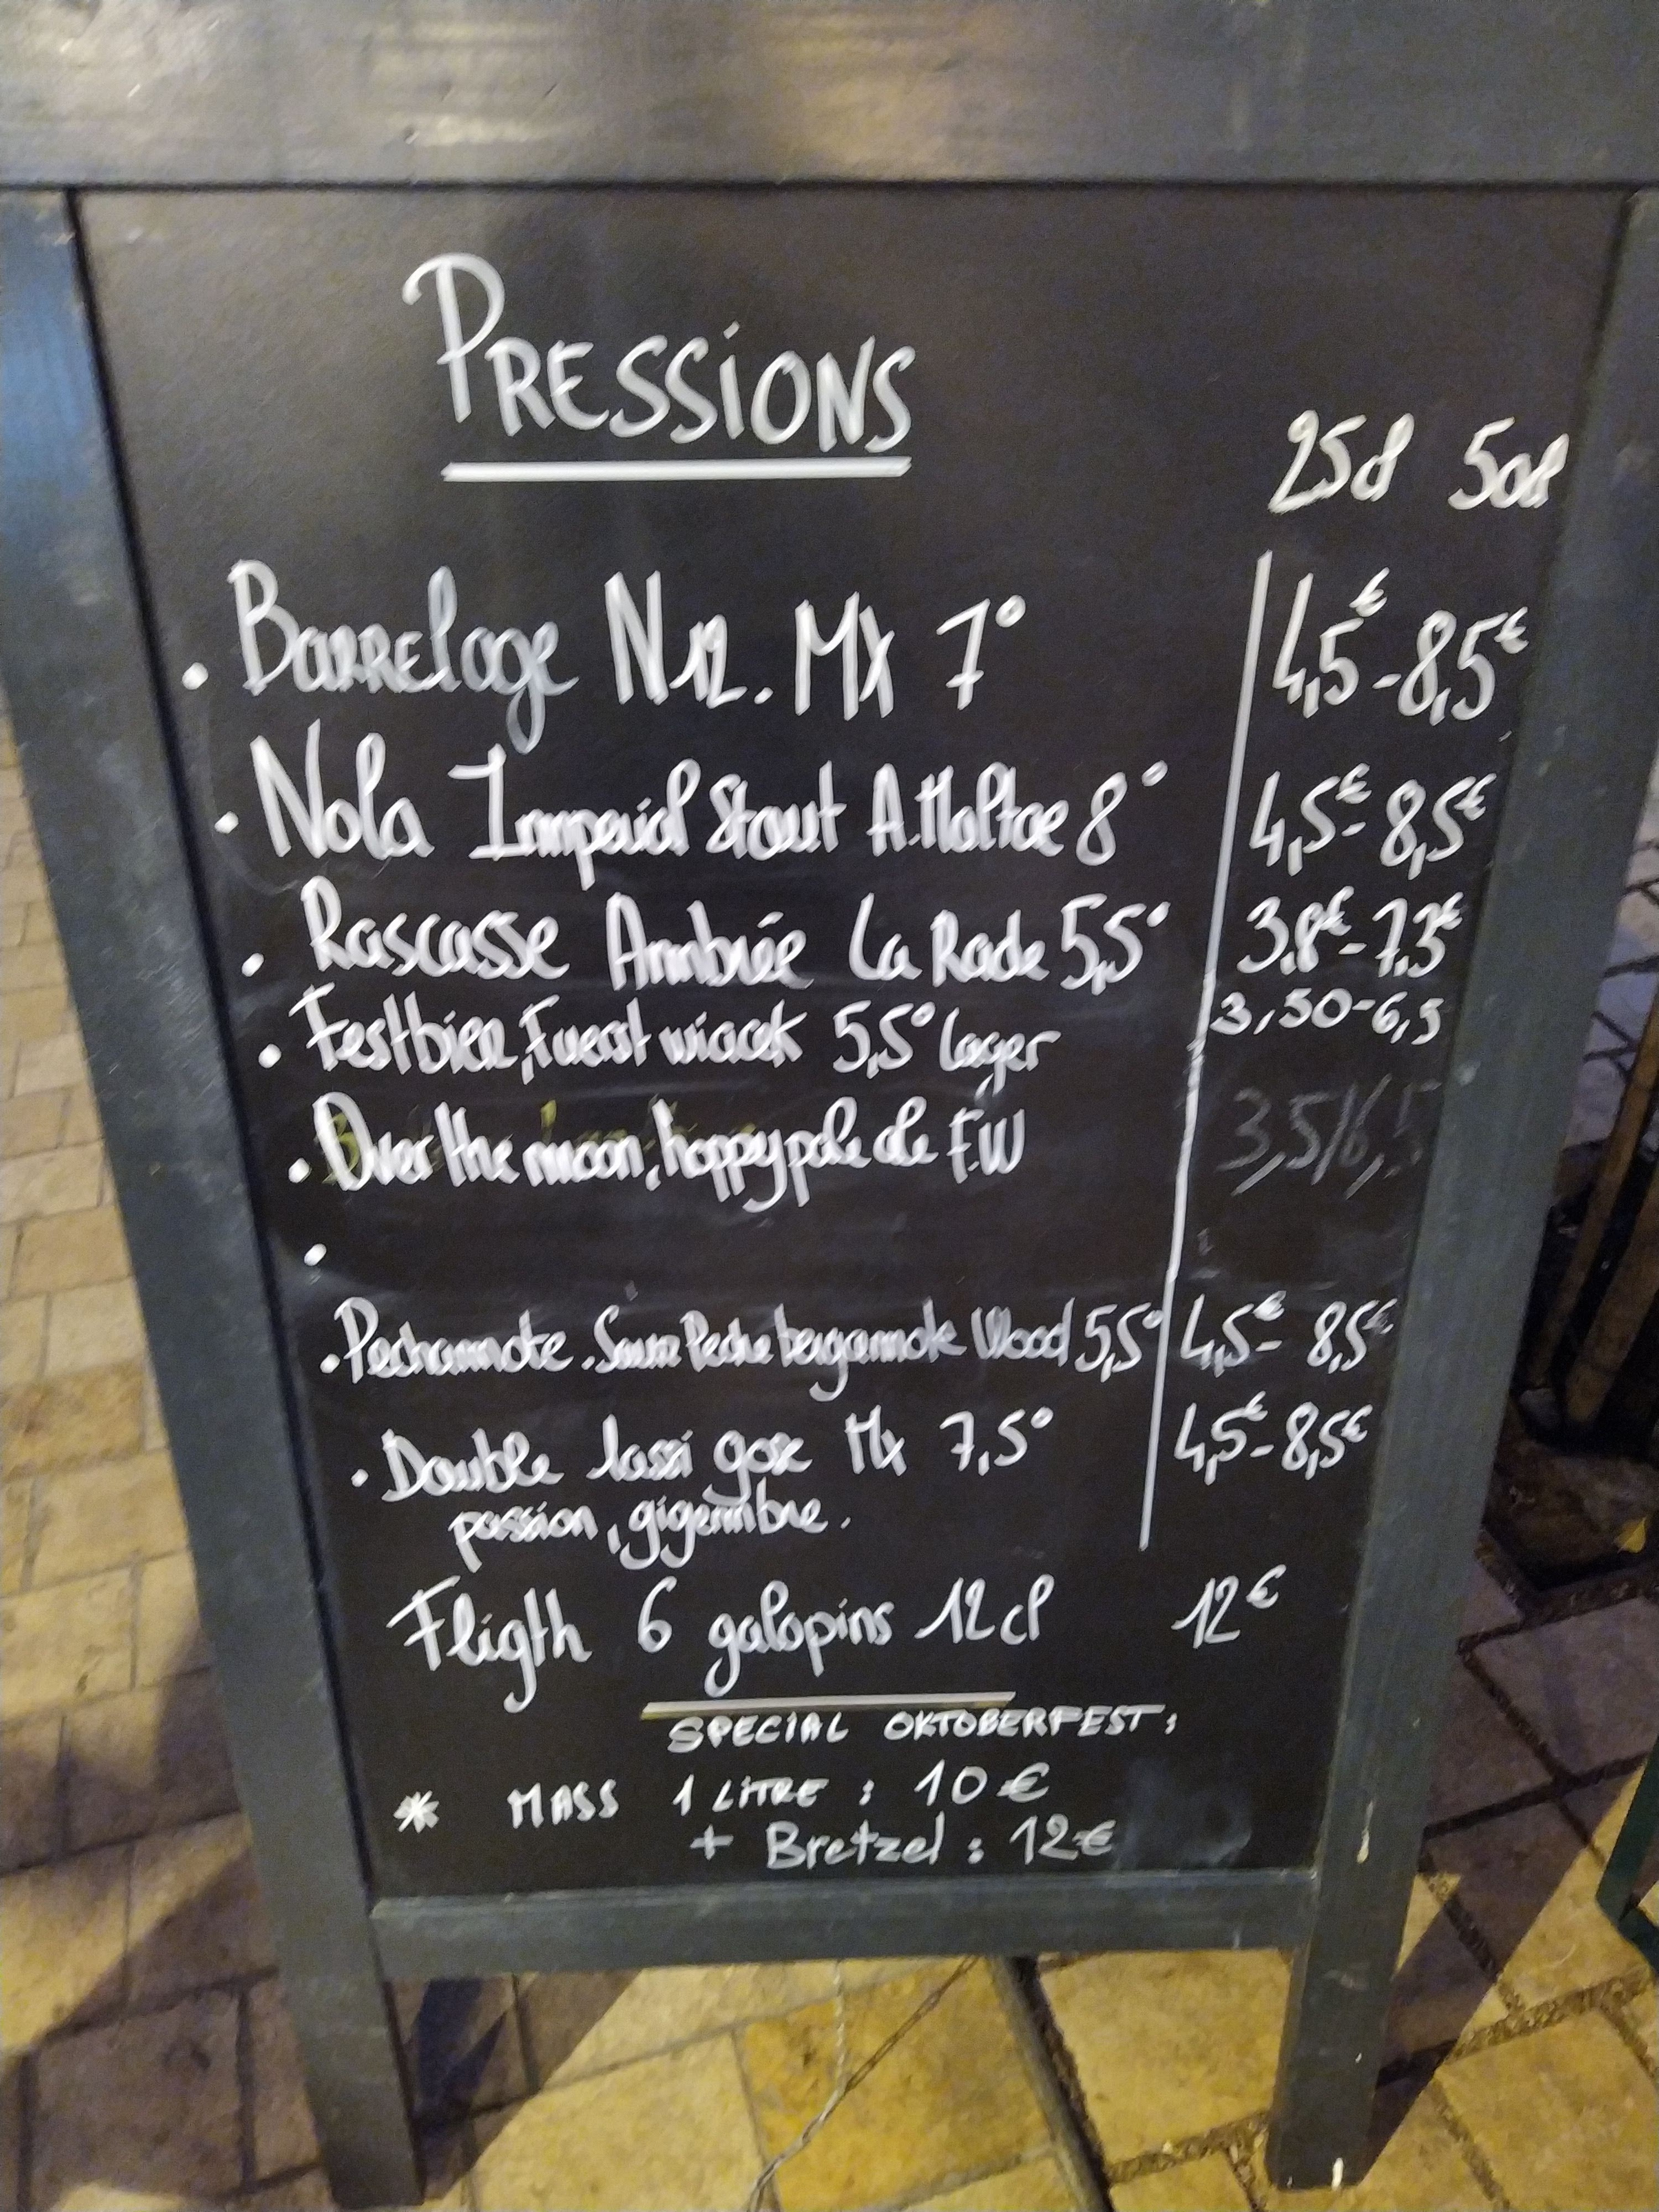 PRESSIONS
25cl 50cl
. Barrelage N12. MX 7° 4,5€-8,5€
. Nola Imperial Stout A.Maltae 8° 4,5€-8,5€
. Rascasse Ambrée La Rade 5,5° 3,8€-7,3€
. Festbier, Fuerst wiacek 5,5° lager 3,50-6,5
. Over the moon, hoppy pale de F.W 3,5/6,5
.
. Pechamote. Sour Peche bergamote Wood 5,5° 4,5€- 8,5€
. Double lassi gose MX 7,5° 4,5€-8,5€
passion, gigembre.
Fligth 6 galopins 12cl 12€
SPECIAL OKTOBERFEST:
* MASS 1 LITRE : 10€
+ Bretzel : 12€